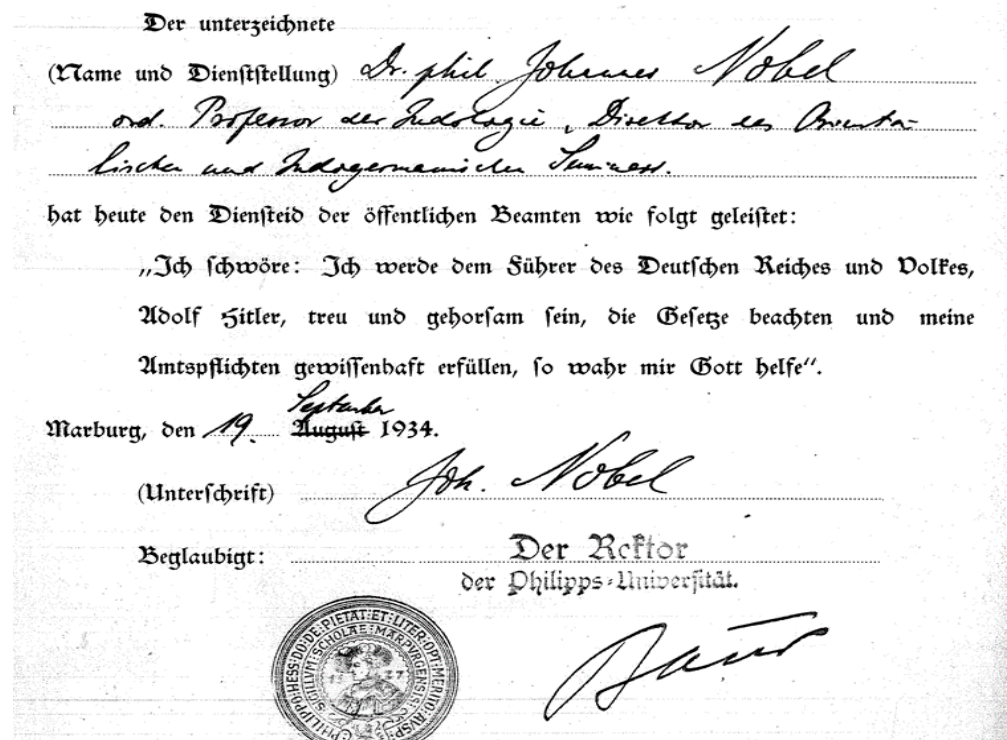 Der unterzeichnete
(Name und Dienststellung) Dr. phil. Johannes Nobel
ord. Professor der Indologie, Direktor des Orienta-
lischen und Indogermanischen Seminars.
hat heute den Diensteid der öffentlichen Beamten wie folgt geleistet:
„Ich schwöre: Ich werde dem Führer des Deutschen Reiches und Volkes,
Adolf Hitler, treu und gehorsam sein, die Gesetze beachten und meine
Amtspflichten gewissenhaft erfüllen, so wahr mir Gott helfe“.
September
Marburg, den 19. August 1934.
(Unterschrift) Joh. Nobel
Beglaubigt: Der Rektor
der Philipps-Universität.
PHILIPPO:HESS:DO:DE:PIETAT:ET:LITER:OPT:MERITO:AVSP:
SIGILLVM:SCHOLAE:MARPVRGENSIS
15 27